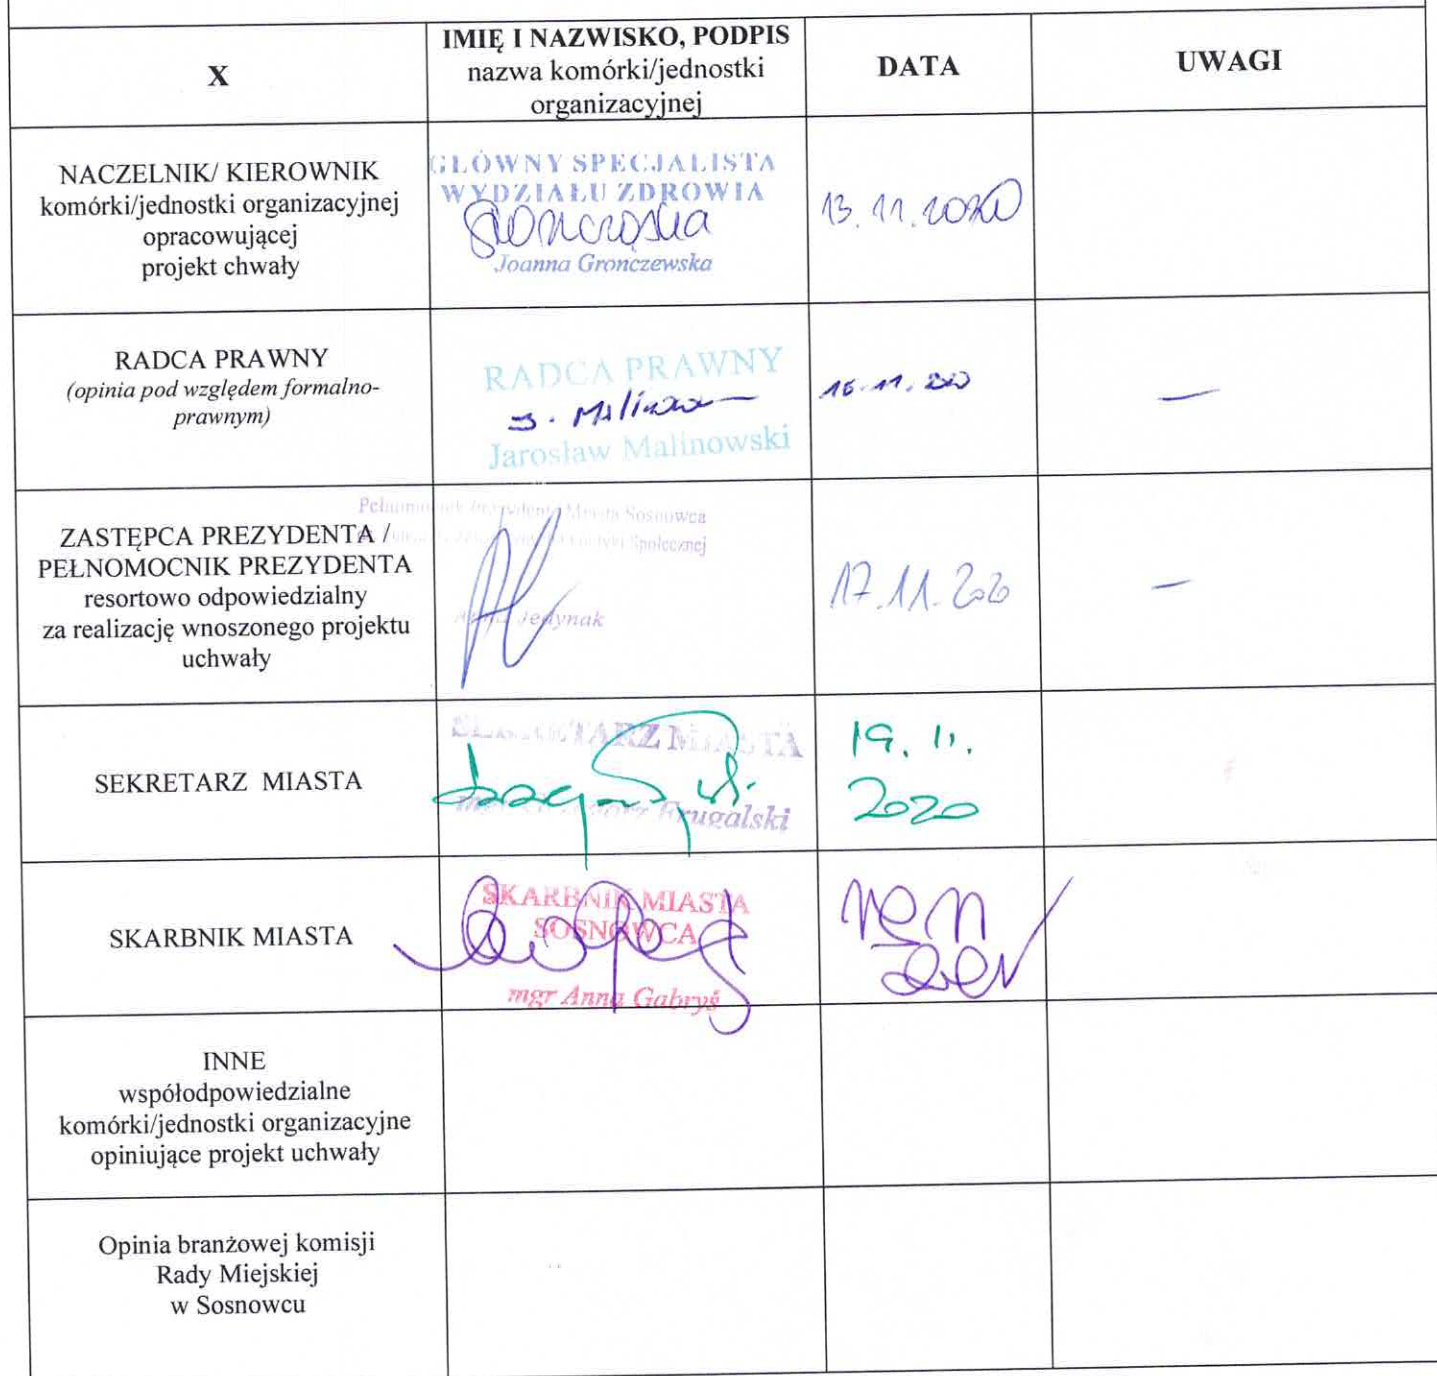 X
IMIĘ I NAZWISKO, PODPIS
nazwa komórki/jednostki
organizacyjnej
DATA
UWAGI
NACZELNIK/ KIEROWNIK
komórki/jednostki organizacyjnej
opracowującej
projekt chwały
GŁÓWNY SPECJALISTA
WYDZIAŁU ZDROWIA
Joanna Gronczewska
13.11.2020
RADCA PRAWNY
(opinia pod względem formalno-
prawnym)
RADCA PRAWNY
J. Malinow
Jarosław Malinowski
—
ZASTĘPCA PREZYDENTA /
PEŁNOMOCNIK PREZYDENTA
resortowo odpowiedzialny
za realizację wnoszonego projektu
uchwały
Pełnomocnik Prezydenta Miasta Sosnowca
Społecznej
Jedynak
17.11.2020
—
SEKRETARZ MIASTA
SEKRETARZ MIASTA
mgr Frugalski
19. 11.
2020
SKARBNIK MIASTA
SKARBNIK MIASTA
SOSNOWCA
mgr Anna Gabryś
INNE
współodpowiedzialne
komórki/jednostki organizacyjne
opiniujące projekt uchwały
Opinia branżowej komisji
Rady Miejskiej
w Sosnowcu